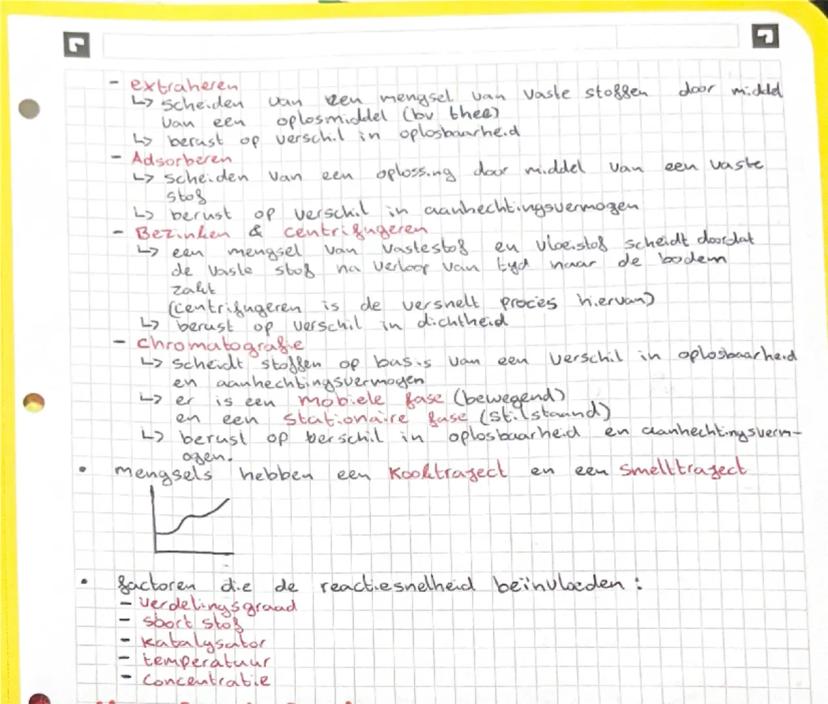 - extraheren
↳ scheiden van een mengsel van vaste stoffen door middel
van een oplosmiddel (bv thee)
↳ berust op verschil in oplosbaarheid
- Adsorberen
↳ scheiden van een oplossing door middel van een vaste
stof
↳ berust op verschil in aanhechtingsvermogen
- Bezinken & centrifugeren
↳ een mengsel van vastestof en vloeistof scheidt doordat
de vaste stof na verloop van tyd naar de bodem
zakt
(centrifugeren is de versnelt proces hiervan)
↳ berust op verschil in dichtheid
- chromatografie
↳ scheidt stoffen op basis van een verschil in oplosbaarheid
en aanhechtingsvermogen
↳ er is een mobiele fase (bewegend)
en een stationaire fase (stilstaand)
↳ berust op berschil in oplosbaarheid en aanhechtingsverm-
ogen.
• mengsels hebben een kooktraject en een smelttraject
• factoren die de reactiesnelheid beïnvloeden :
- verdelingsgraad
- sbort stof
- katalysator
- temperatuur
- concentratie